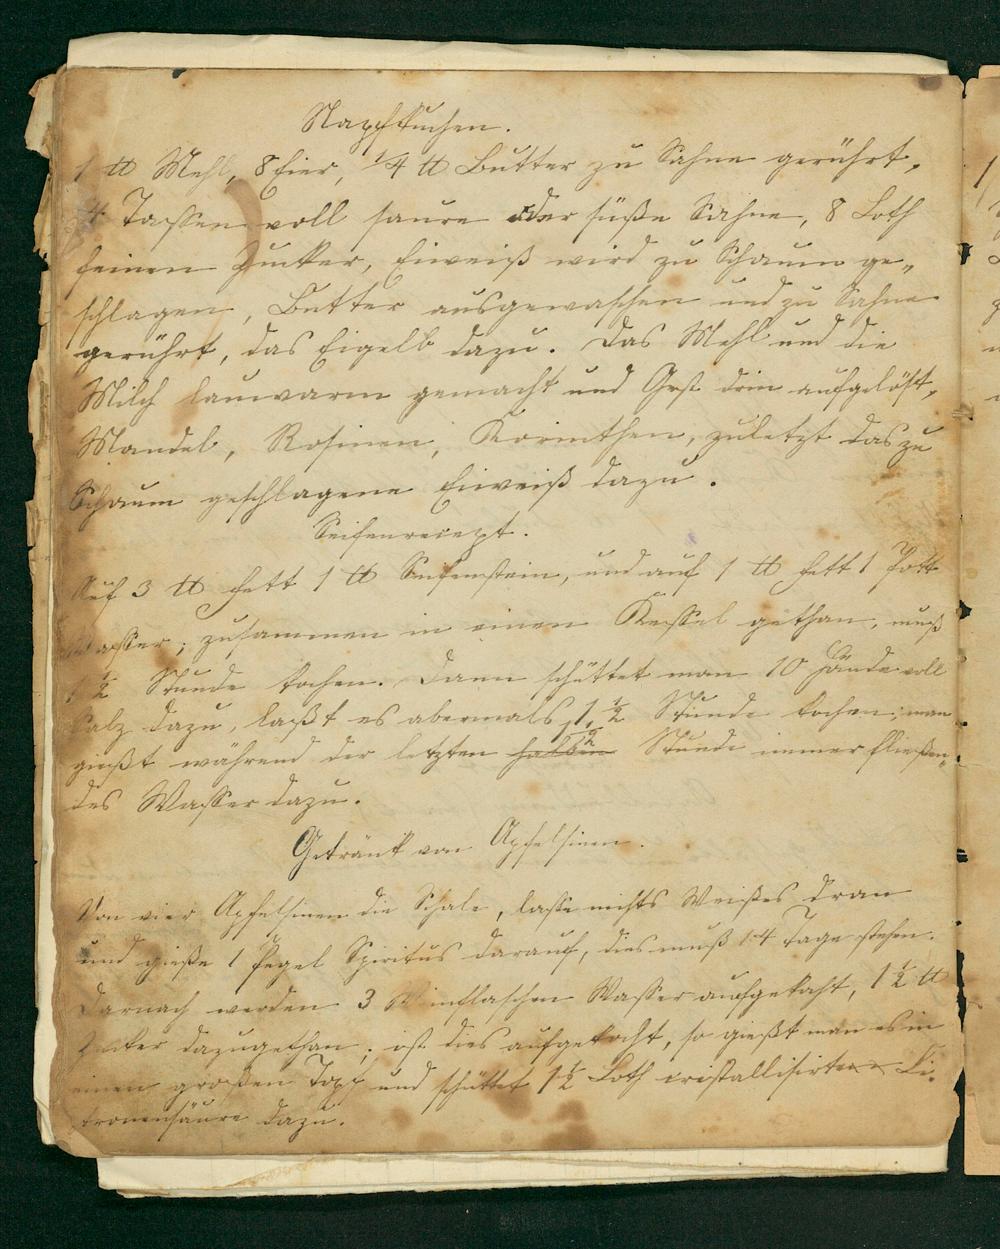 Napfkuchen.
1 ℔ Mehl, 8 Eier, 1/4 ℔ Butter zu Sahne gerührt,
4 Tassen voll saure oder süße Sahne, 8 Loth
feinen Zucker, Eiweiß wird zu Schaum ge-
schlagen, Butter ausgewaschen und zu Sahne
gerührt, das Eigelb dazu. Das Mehl und die
Milch lauwarm gemacht und Gest drin aufgelöst,
Mandel, Rosinen, Korinthen, zuletzt das zu
Schaum geschlagene Eiweiß dazu.
Seifenrecept.
Auf 3 ℔ Fett 1 ℔ Seifenstein, und auf 1 ℔ Fett 1 Pott
Wasser; zusammen in einen Kessel gethan, muß
1 1/2 Stunde kochen. Dann schüttet man 10 Hände voll
Salz dazu, laßt es abermals 1 1/2 Stunde kochen; man
gießt während der letzten halben 1/2 Stunde immer fließen-
des Wasser dazu.
Getränk von Apfelsinen.
Von vier Apfelsinen die Schale, lasse nichts Weißes dran
und gieße 1 Pegel Spiritus darauf, dies muß 14 Tage stehen.
Darnach werden 3 Weinflaschen Wasser aufgekocht, 1 1/2 ℔
Zucker dazugethan; ist dies aufgekocht, so gießt man es in
einen großen Topf und schüttet 1 1/2 Loth cristallisirte Ci-
tronensäure dazu.